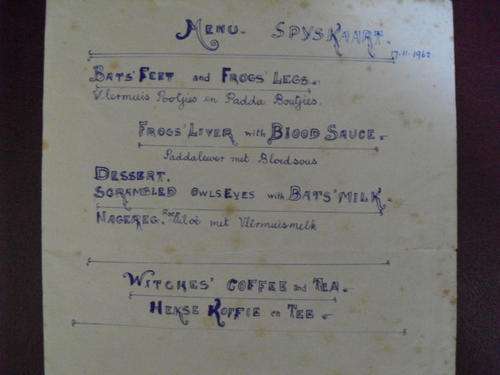 MENU. SPYSKAART.
17-11-1962
BATS' FEET and FROGS' LEGS.
Vlermuis Pootjies en Padda Boutjies.
FROGS' LIVER with BLOOD SAUCE.
Paddalewer met Bloedsous
DESSERT.
SCRAMBLED OWLS EYES with BATS' MILK.
NAGEREG. met Vlermuismelk
WITCHES' COFFEE and TEA.
HEKSE KOFFIE en TEE.